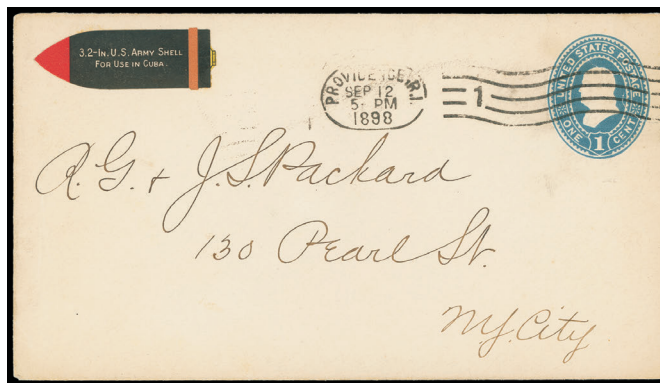 3.2-IN. U.S. ARMY SHELL
FOR USE IN CUBA.
PROVIDENCE, R.I.
SEP 12
5- PM
1898
1
UNITED STATES POSTAGE
ONE 1 CENT
R. G. & J. S. Packard
130 Pearl St.
N.Y. City